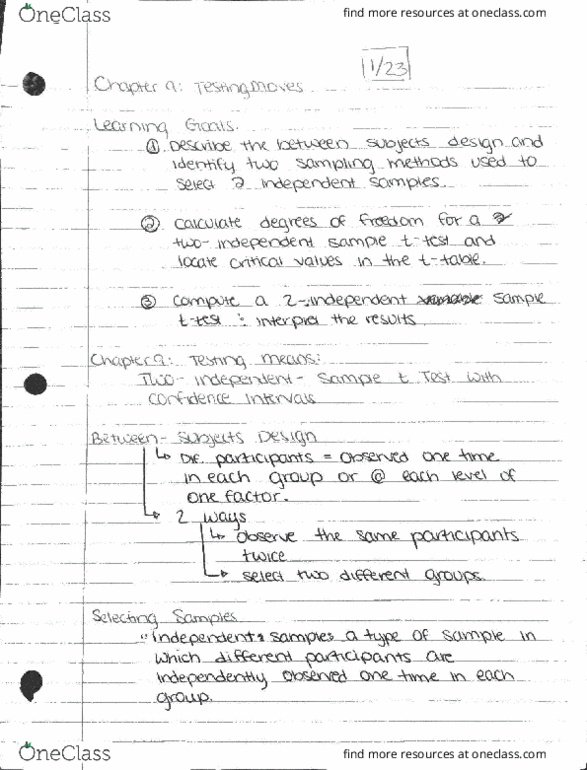 OneClass
find more resources at oneclass.com
1/23
Chapter 9: Testing Moves
Learning Goals.
① Describe the between subjects design and
identify two sampling methods used to
select 2 independent samples.
② calculate degrees of freedom for a
two-independent sample t-test and
locate critical values in the t-table.
③ Compute a 2-independent sample
t-test : interpret the results
Chapter 9: Testing means:
Two-independent-sample t Test with
confidence intervals
Between-Subjects Design
↳ Dif. participants = observed one time
in each group or @ each level of
one factor.
↳ 2 ways
↳ observe the same participants
twice
↳ select two different groups.
Selecting Samples
"independent: samples a type of sample in
which different participants are
independently observed one time in each
group.
OneClass
find more resources at oneclass.com